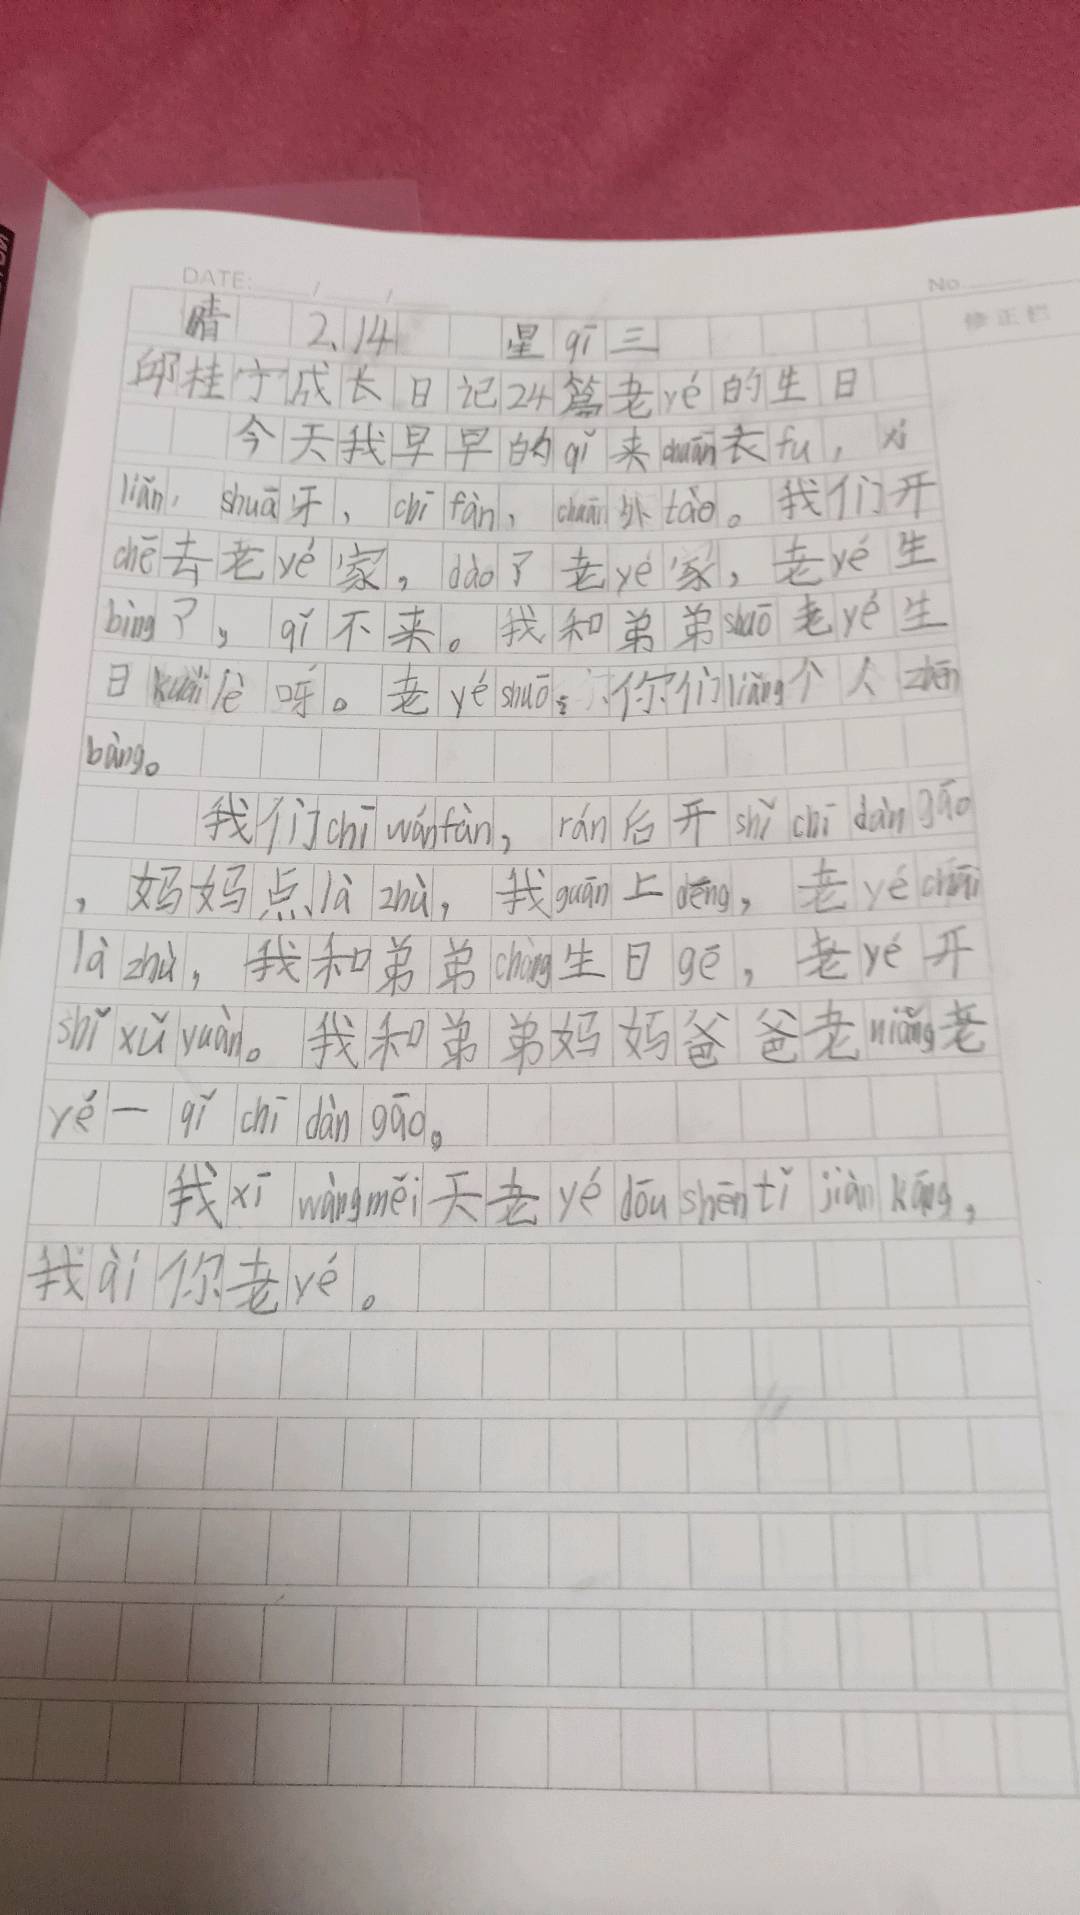 DATE: / /
No
修正栏
晴 2.14 星qī三
邱桂宁成长日记24篇老yé的生日
今天我早早的qǐ来chuān衣fu, xǐ
liǎn, shuā牙, chī fàn, chuān外tào。我们开
chē去老yé家, dào了老yé家, 老yé生
bìng了, qǐ不来。我和弟弟shuō老yé生
日kuài lè呀。老yé shuō:你们liǎng个人zhēn
bàng。
我们chī wán fàn, rán后开shǐ chī dàn gāo
, 妈妈点là zhù, 我guān上dēng, 老yé chuī
là zhù, 我和弟弟chàng生日gē, 老yé开
shǐ xǔ yuàn。我和弟弟妈妈爸爸老niǎng老
yé一qǐ chī dàn gāo。
我xī wàng měi天老yé dōu shēn tǐ jiàn kāng,
我ài你老yé。